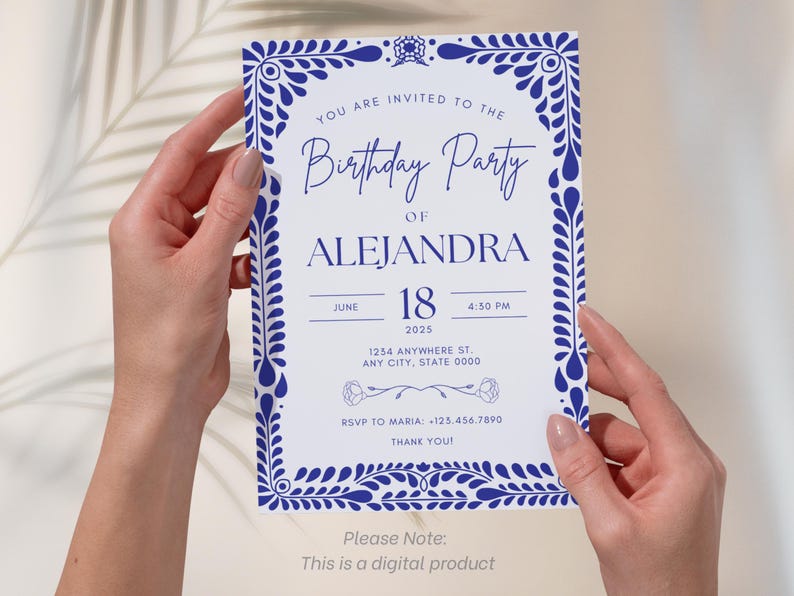 YOU ARE INVITED TO THE
Birthday Party
OF
ALEJANDRA
JUNE 18 4:30 PM
2025
1234 ANYWHERE ST.
ANY CITY, STATE 0000
RSVP TO MARIA: +123.456.7890
THANK YOU!
Please Note:
This is a digital product